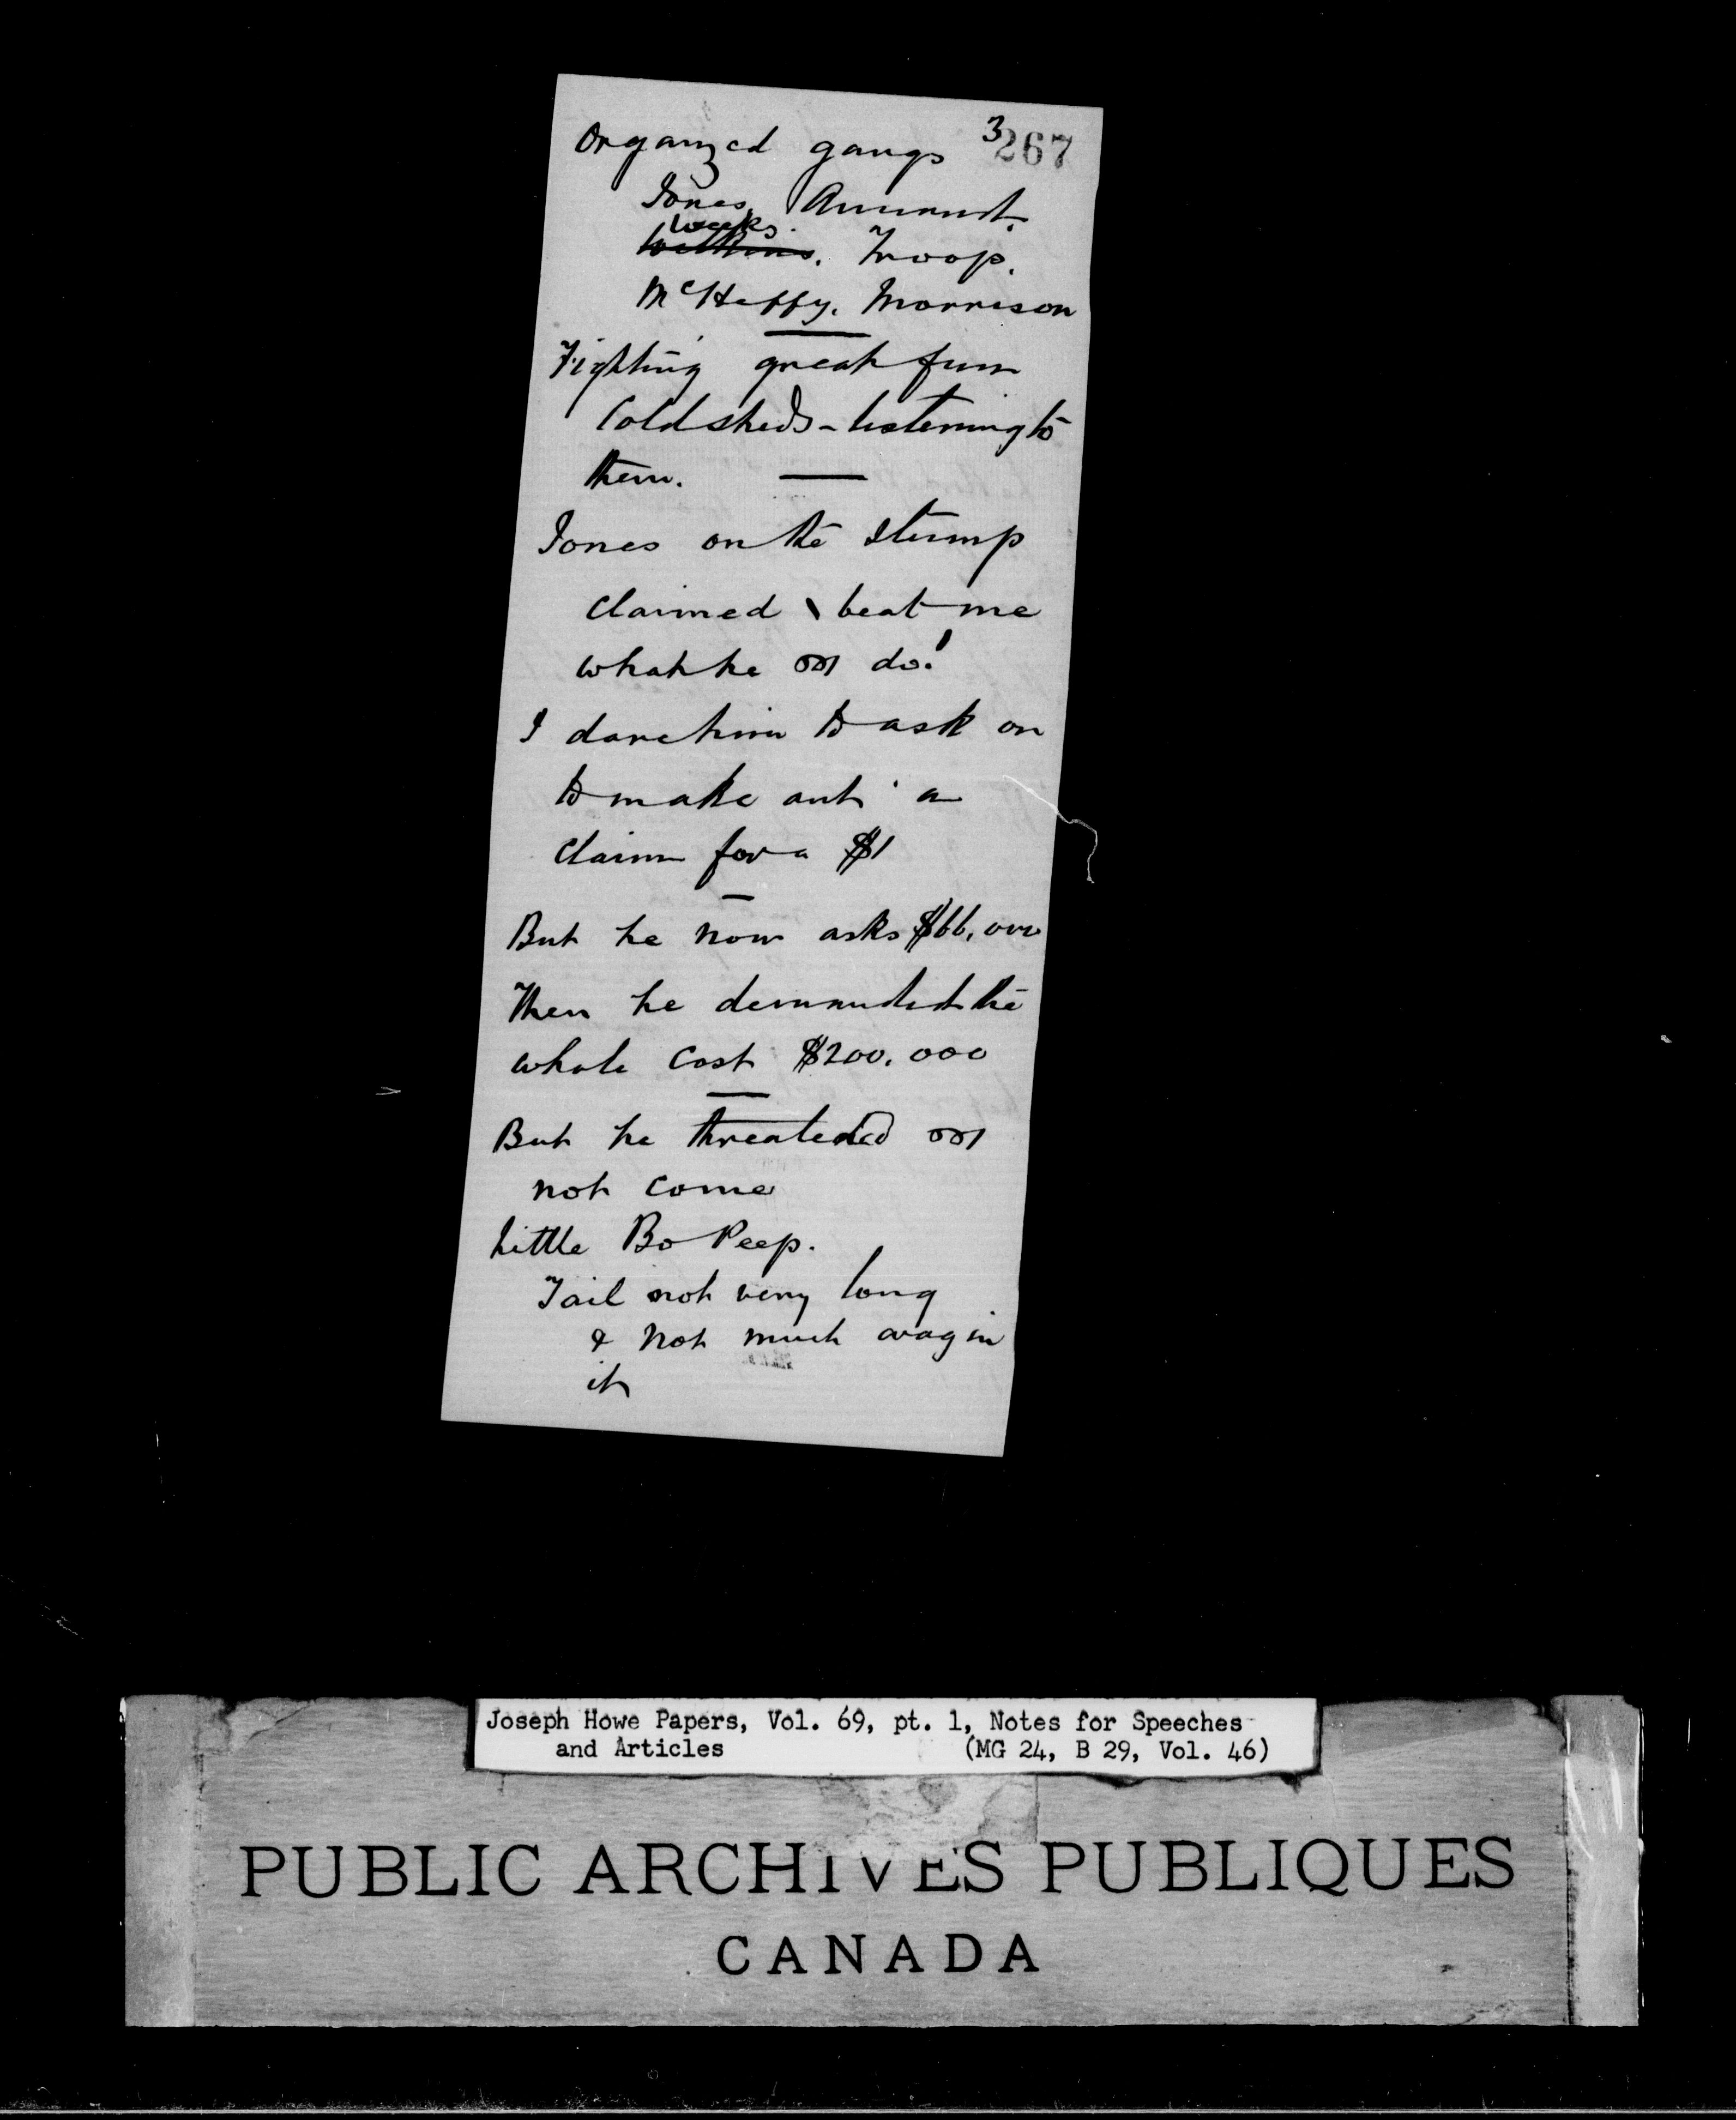 3
267
Organized gangs
Jones, Annand.
Weeks.
Wilkins. Troop.
McHeffy. Morrison
Fighting great fun
Cold sheds - listening to
them.
Jones on the Stump
claimed beat me
what he do!
I dare him to ask on
to make out a
claim for a $1
But he now asks $66,000
Then he demanded the
whole cost $200.000
But he threatened
not come
Little Bo Peep.
Tail not very long
& not much wag in
it
Joseph Howe Papers, Vol. 69, pt. 1, Notes for Speeches
and Articles (MG 24, B 29, Vol. 46)
PUBLIC ARCHIVES PUBLIQUES
CANADA